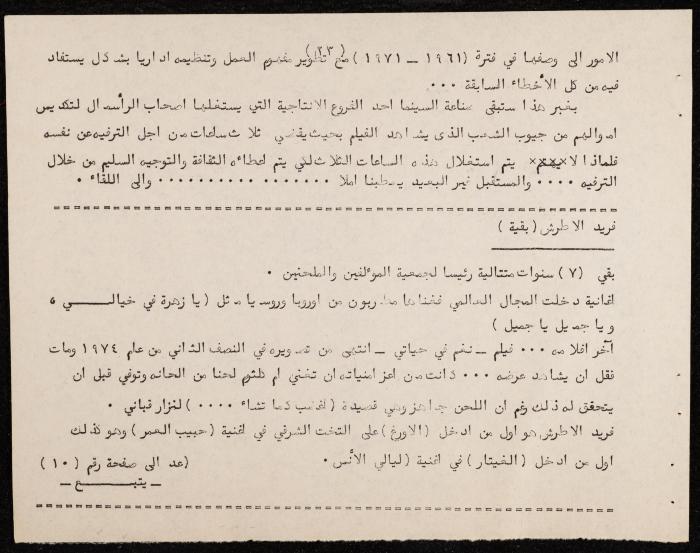 (٢٣)
الامور الى وضعها في فترة (١٩٦١ ــ ١٩٧١) مع تطوير مفهوم العمل وتنظيمه اداريا بشكل يستفاد
فيه من كل الأخطاء السابقة ٠٠٠
بغير هذا ستبقى صناعة السينما احد الفروع الانتاجية التي يستغلها اصحاب الرأسمال لتكديس
اموالهم من جيوب الشعب الذى يشاهد الفيلم بحيث يقضي ثلاث ساعات من اجل الترفيه عن نفسه
فلماذا لا يتم استغلال هذه الساعات الثلاث لكي يتم اعطائه الثقافة والتوجيه السليم من خلال
الترفيه ٠٠٠٠ والمستقبل غير البعيد يعطينا املا ٠٠٠٠٠٠٠ ٠٠٠٠٠٠٠٠٠٠ والى اللقاء ٠
فريد الاطرش (بقية)
بقي (٧) سنوات متتالية رئيسا لجمعية المؤلفين والملحنين ٠
اغانية دخلت المجال العالمي فغناها مطربون من اوروبا وروسيا مثل (يا زهرة في خيالــــي ٥
ويا جميل يا جميل)
آخر افلامه ٠٠٠ فيلم ــ نغم في حياتي ــ انتهى من تصويره في النصف الثاني من عام ١٩٧٤ ومات
فقل ان يشاهد عرضه ٠٠٠ كانت من اعز امنياته ان تغني ام كلثوم لحنا من الحانه وتوفي قبل ان
يتحقق له ذلك رغم ان اللحن جاهز وهي قصيدة (اغضب كما تشاء ٠٠٠٠) لنزار قباني ٠
فريد الاطرش هو اول من ادخل (الاورغ) على التخت الشرقي في اغنية (حبيب العمر) وهو كذلك
اول من ادخل (الغيتار) في اغنية (ليالي الأنس ٠ (عد الى صفحة رقم (١٠)
ــ يتبــع ــ